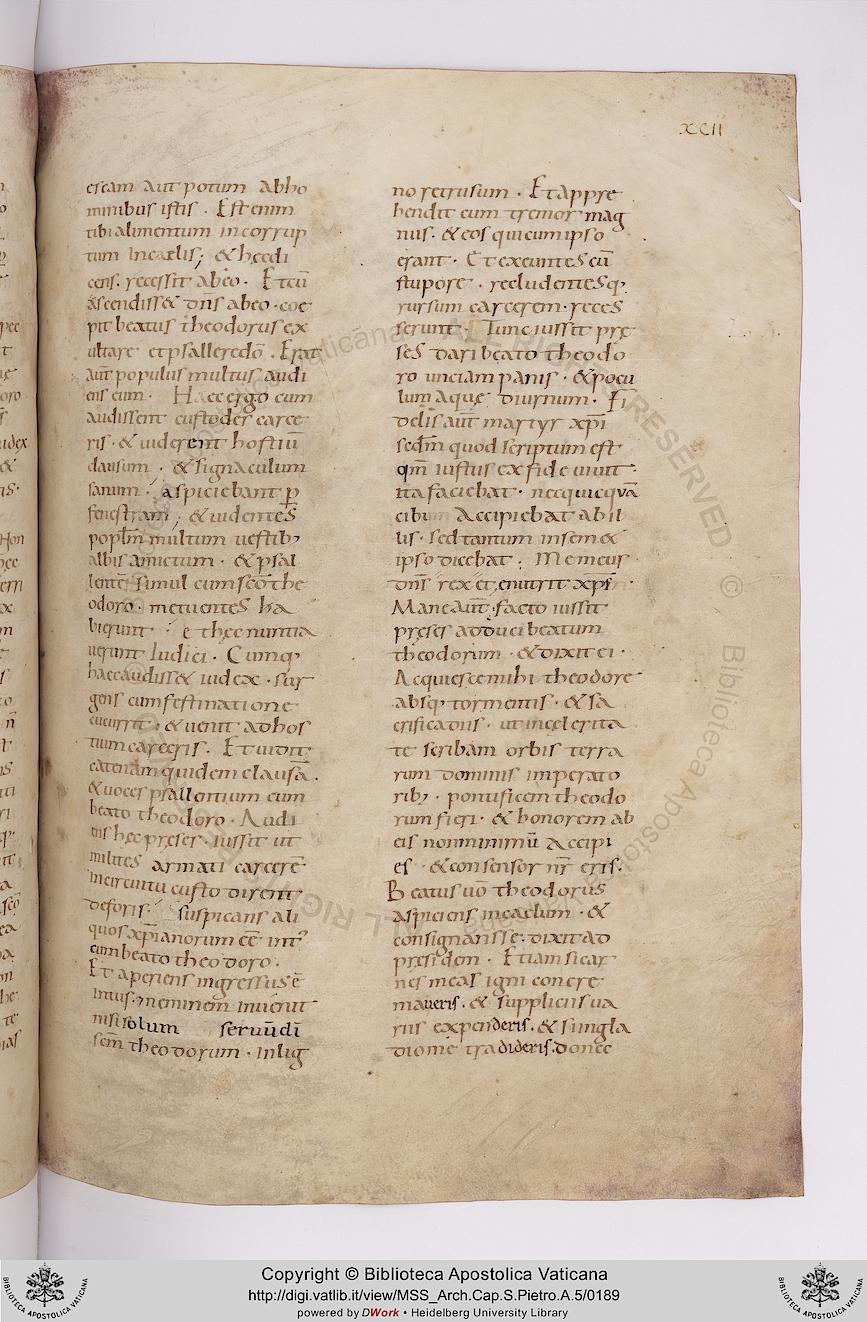 XCII
escam aut potum abho
minibus istis . Est enim
tibi alimentum incorrup
tum incaelis; & haec di
cens . recessit abeo . Et cū
ascendiss& dn̄s abeo . coe
pit beatus theodorus ex
ultare et psallere dō . Erat
aut̄ populus multus audi
ens eum . Haec ergo cum
audissent custodes carce
ris . & uiderent hostiū
clausum . & signaculum
sanum . aspiciebant p̄
fenestram ; & uidentes
popl̄m multum uestib;
albis amictum . & psal
lentē simul cum scō the
odoro . metuentes ha
bierunt . et haec nuntia
uerunt Iudici . Cumq;
haec audiss& iudex . sur
gens cum festinatione
cucurrit . & uenit ad hos
tium carceris . Et uidit
catenam quidem clausā .
& uoces psallentium cum
beato theodoro . Audi
ens hęc preses . iussit ut
milites armati carcerē
incircuitu custodirent
deforis . suspicans ali
quos xp̄ianorum eē int̓
cum beato theodoro .
Et aperiens ingressus ē
intus . & neminem inuenit
nisi solum seruū dī
scm̄ theodorum . inlig
no retrusum . Et appre
hendit eum tremor mag
nus . & eos qui cum ipso
erant . Et exeuntes cū
stupore . recludentesq;
rursum carcerem . reces
serunt . Tunc iussit prę
ses dari beato theodo
ro unciam panis . & pocu
lum aquę diurnum . Fi
delis aut̄ martyr xp̄i
sedm̄ quod scriptum est
qm̄ iustus ex fide uiuit .
ita faciebat . nec quicquā
cibum accipiebat ab il
lis . sed tantum in sem&
ipso dicebat . Me meus
dn̄s rex et enutrit xp̄s .
Mane aut̄ facto iussit
preses adduci beatum
theodorum . & dixit ei .
Acquiesce mihi theodore
absq; tormentis . & sa
crifica diis . ut in celerita
te scribam orbis terra
rum dominis imperato
rib; . pontificem theodo
rum fieri . & honorem ab
eis non minimū accipi
es . & consensor nr̄ eris .
Beatus uō theodorus
aspiciens incaelum . &
consignans se . dixit ad
presidem . Etiam si car
nes meas igni concre
maueris . & suppliciis ua
riis expenderis . & si ungla
dio me tradideris . donec
Copyright © Biblioteca Apostolica Vaticana
http://digi.vatlib.it/view/MSS_Arch.Cap.S.Pietro.A.5/0189
powered by DWork • Heidelberg University Library